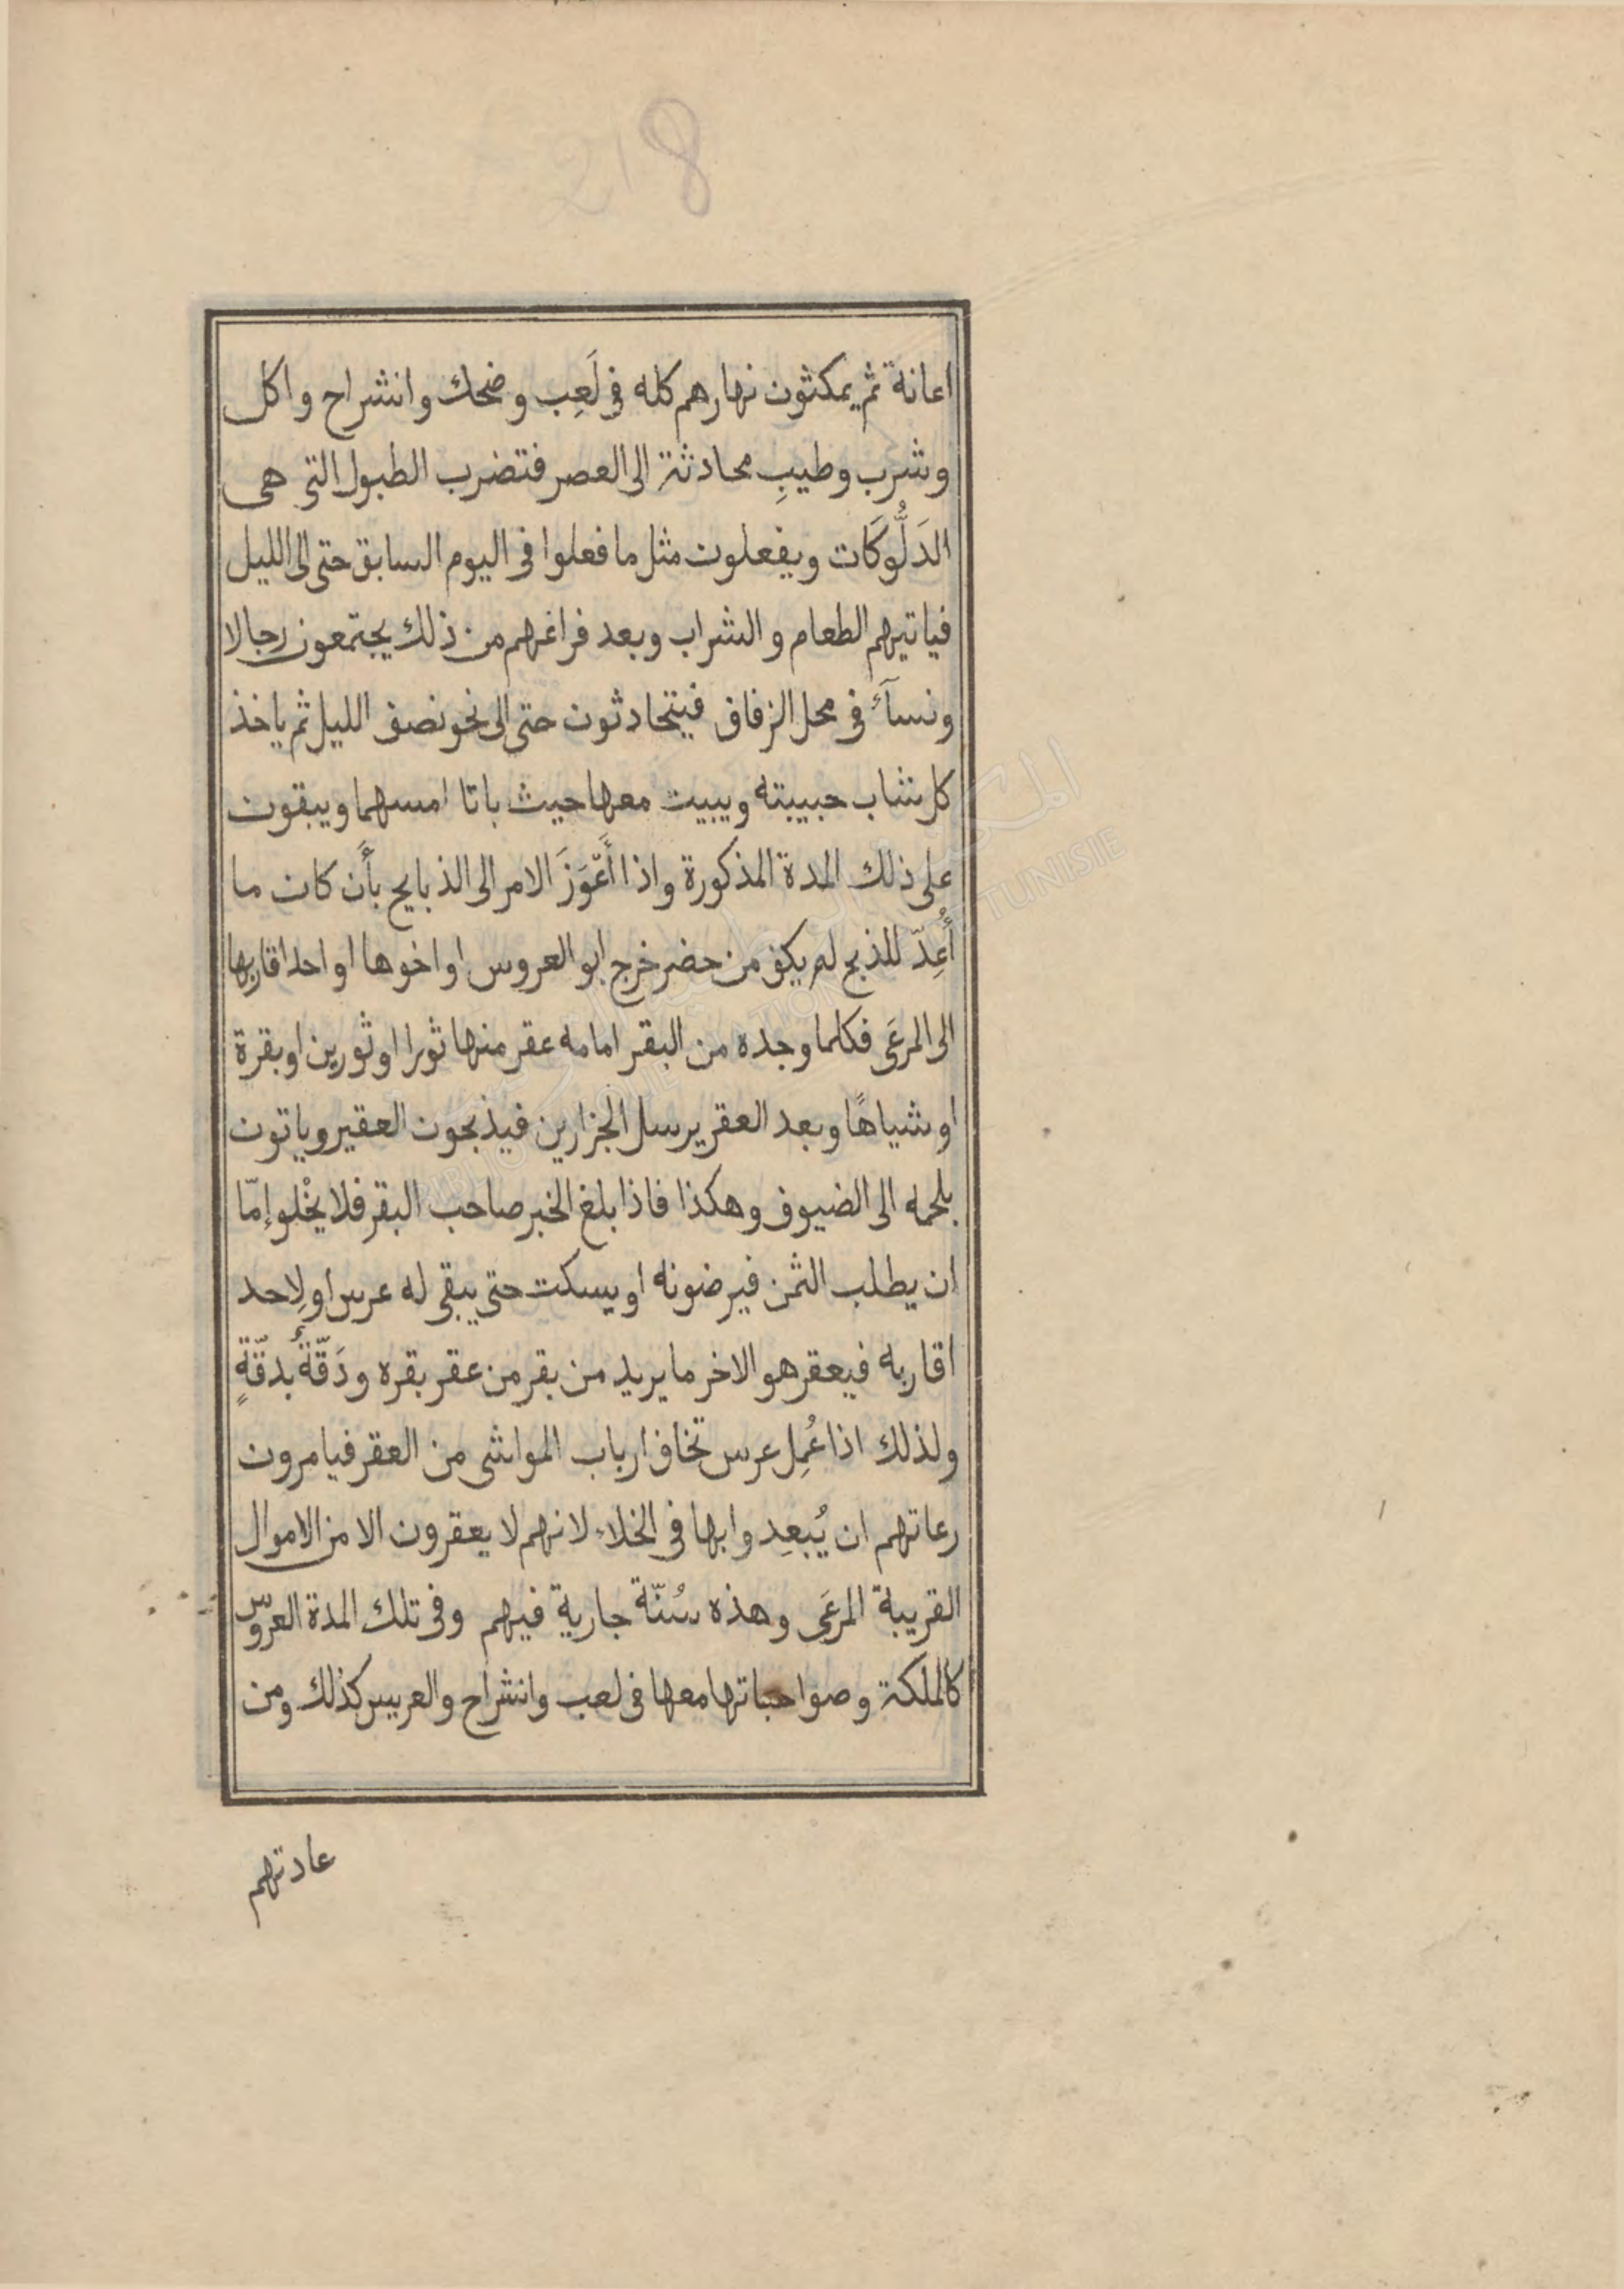 218
اعانة ثم يمكثون نهارهم كله فى لَعِب وضحك وانشراح واكل
وشرب وطيبِ محادثة الى العصر فتضرب الطبول التى هى
الدَلُّوكَات ويفعلون مثل ما فعلوا فى اليوم السابق حتى الى الليل
فياتيهم الطعام والشراب وبعد فراغهم من ذلك يجتمعون رجالا
ونسآءً فى محل الزفاف فيتحادثون حتى الى نحو نصف الليل ثم ياخذ
كل شاب حبيبته ويبيت معها حيث باتا امسهما ويبقون
على ذلك المدة المذكورة واذا أَعْوَزَ الامر الى الذبايح بأَن كان ما
أُعِدّ للذبح لم يكف من حضر خرج ابو العروس او اخوها او احد اقاربها
الى المرعَى فكلما وجده من البقر امامه عقر منها ثورا او ثورين او بقرة
او شياهًا وبعد العقر يرسل الجزارين فيذبحون العقير وياتون
بلحمه الى الضيوف وهكذا فاذا بلغ الخبر صاحب البقر فلا يخْلو إمّا
ان يطلب الثمن فيرضونه او يسكت حتى يبقى له عرس او لِاحد
اقاربه فيعقر هو الاخر ما يريد من بقر من عقر بقره ودَقّةٌ بدقّةٍ
ولذلك اذا عُمِل عرس تخاف ارباب المواشى من العقر فيامرون
رعاتهم ان يُبعِدوا بها فى الخلاء لانهم لا يعقرون الا من الاموال
القريبة المرعَى وهذه سُنّة جارية فيهم وفى تلك المدة العروس
كالملَكة وصواحباتها معها فى لعب وانشراح والعريس كذلك ومن
عادتهم
TUNISIE